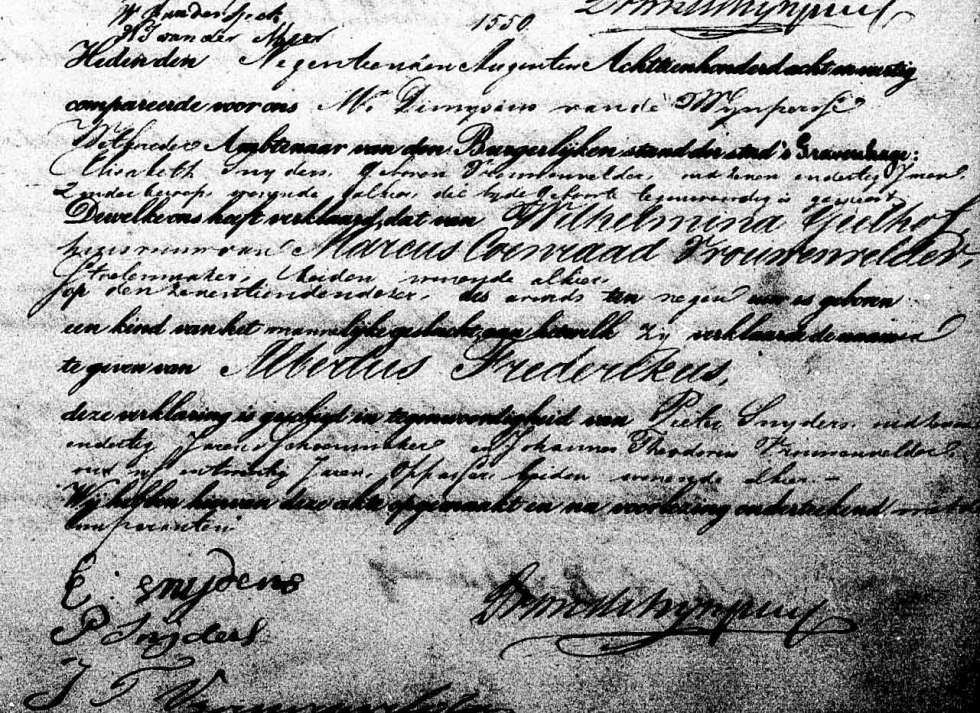 W van der Speck
1550.
D v an de Wynpersse
A J van der Meer
Heden den Negentienden Augustus Achttienhonderd acht en veertig
compareerde voor ons Mr. Dionysius van de Wynpersse
Wethouder Ambtenaar van den Burgerlijken stand der stad 's Gravenhage:
Elisabeth Snyders, geboren Vrouwenvelder, oud een en dertig Jaren
Zonder beroep, wonende alhier, die by de Geboorte tegenwoordig is geweest
Dewelke ons heeft verklaard, dat van Wilhelmina
huisvrouw van Marcus Coenraad Vrouwenvelder,
Stoelenmaker, beiden wonende alhier,
op den zeventienden dezer, des avonds ten negen ure is geboren
een kind van het mannelijke geslacht, aan hetwelk zy verklaarde de namen
te geven van Albertus Frederikus,
deze verklaring is geschied in tegenwoordigheid van Pieter Snyders, oud
en dertig Jaren, Schoenmaker en Johannes Theodorus Vrouwenvelder
oud en twintig Jaren, Oppasser, beiden wonende alhier.
Wij hebben hiervan deze akte opgemaakt en na voorlezing onderteekend met de
Comparanten.
E. snijders
P Snijders
D v an de Wynpersse
J T Vrouwenvelder